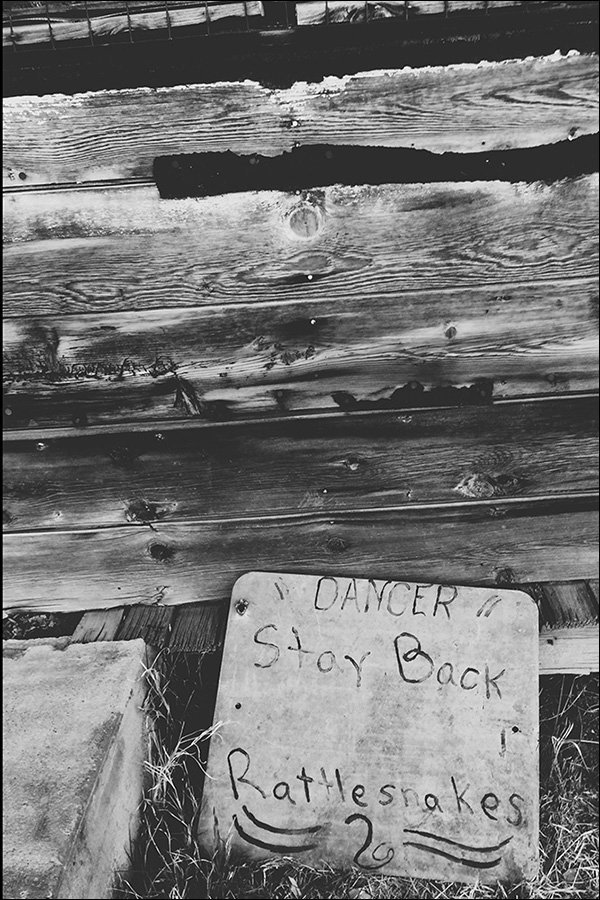 " DANCER "
Stay Back
Rattlesnakes